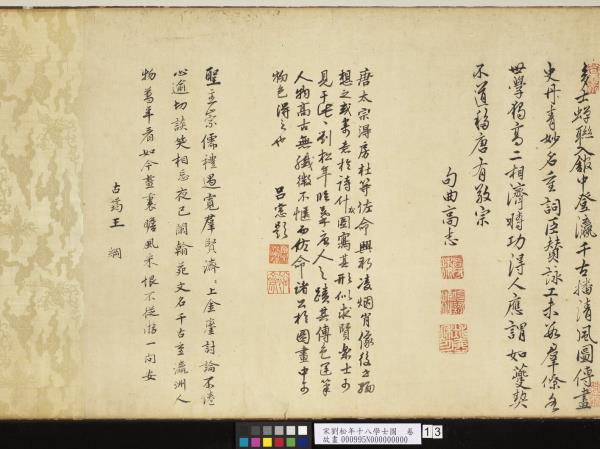 多士蟬聯入館中登瀛千古播清風圖傳畫
史丹青妙名重詞臣贊詠工未必群僚皆
世學獨高二相濟時功得人應謂如夔契
不道 唐有敬宗
句曲高志
唐太宗得房杜等佐命興 凌烟肖像後之緬
想之或 意於詩什或圖寫其形似求賢 士可
見于此 劉松年 摹唐人之蹟其傳色運筆
人物高古無纖微不愜而佐命諸公於圖畫中可
物色得之也
呂憲題
聖主崇儒禮遇寬群賢濟々上金鑾討論不倦
心逾切談笑相忘夜已闌翰苑文名千古重瀛洲人
物萬年看如今畫裏瞻風采恨不從游一問安
古 王綱
宋劉松年十八學士圖 卷
故畫 000995N000000000
13